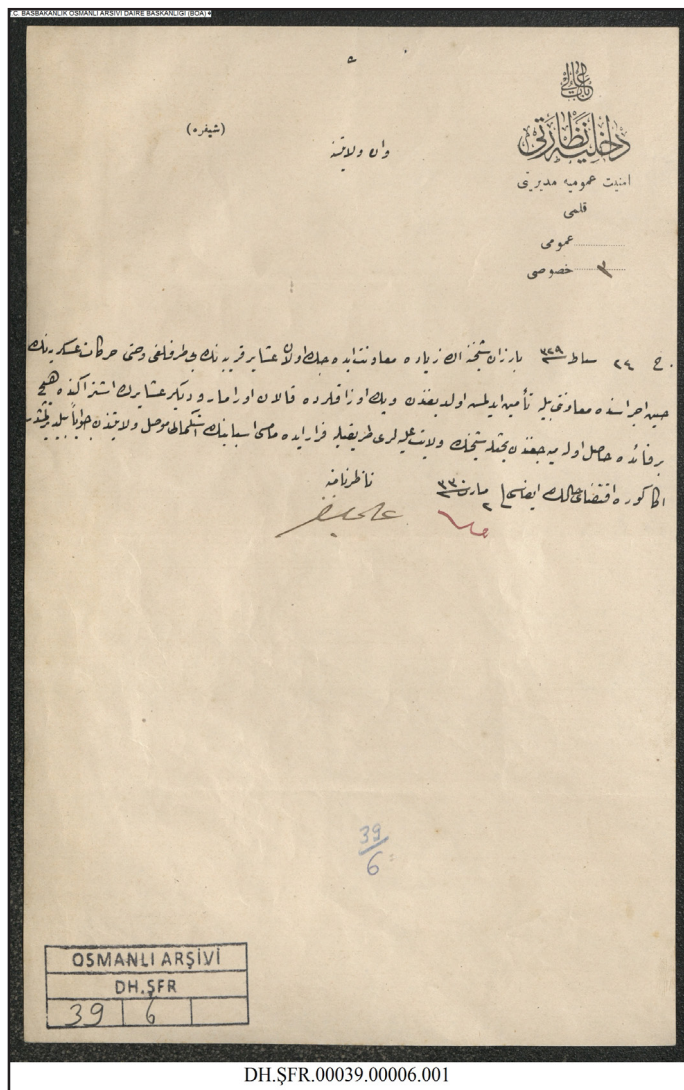 T.C. BASBAKANLIK OSMANLI ARSIVI DAIRE BASKANLIGI (BOA)
باب عالی
داخلیه نظارتی
امنیت عمومیه مدیریتی
قلمی
عمومی
خصوصی ٣
(شیفره)
وان ولایتنه
ج ٢٤ شباط ٣٢٩ بارزان شیخنه اك زیاده معاونت ایده جك اولان عشایر قریبه نك بی طرفلغی وحتی حركات عسكریه نك
حین اجراسنده معاونتی بیله تأمین ایدلمش اولدیغندن وپك اوزاقلرده قالان اورامار ودیكر عشایرك اشتراكنده هیچ
بر فائده حاصل اولمیه جغندن بحثله شیخك ولایت علیه لری طریقیله فرار ایده مامسی اسبابنك استكمالی موصل ولایتندن جواباً بیلدیرلمشدر
اكا كوره اقتضای حالك ایفاسی ٢ مارت ٣٣٠
ناظر نامنه
39
6
OSMANLI ARŞİVİ
DH.ŞFR
39 6
DH.ŞFR.00039.00006.001